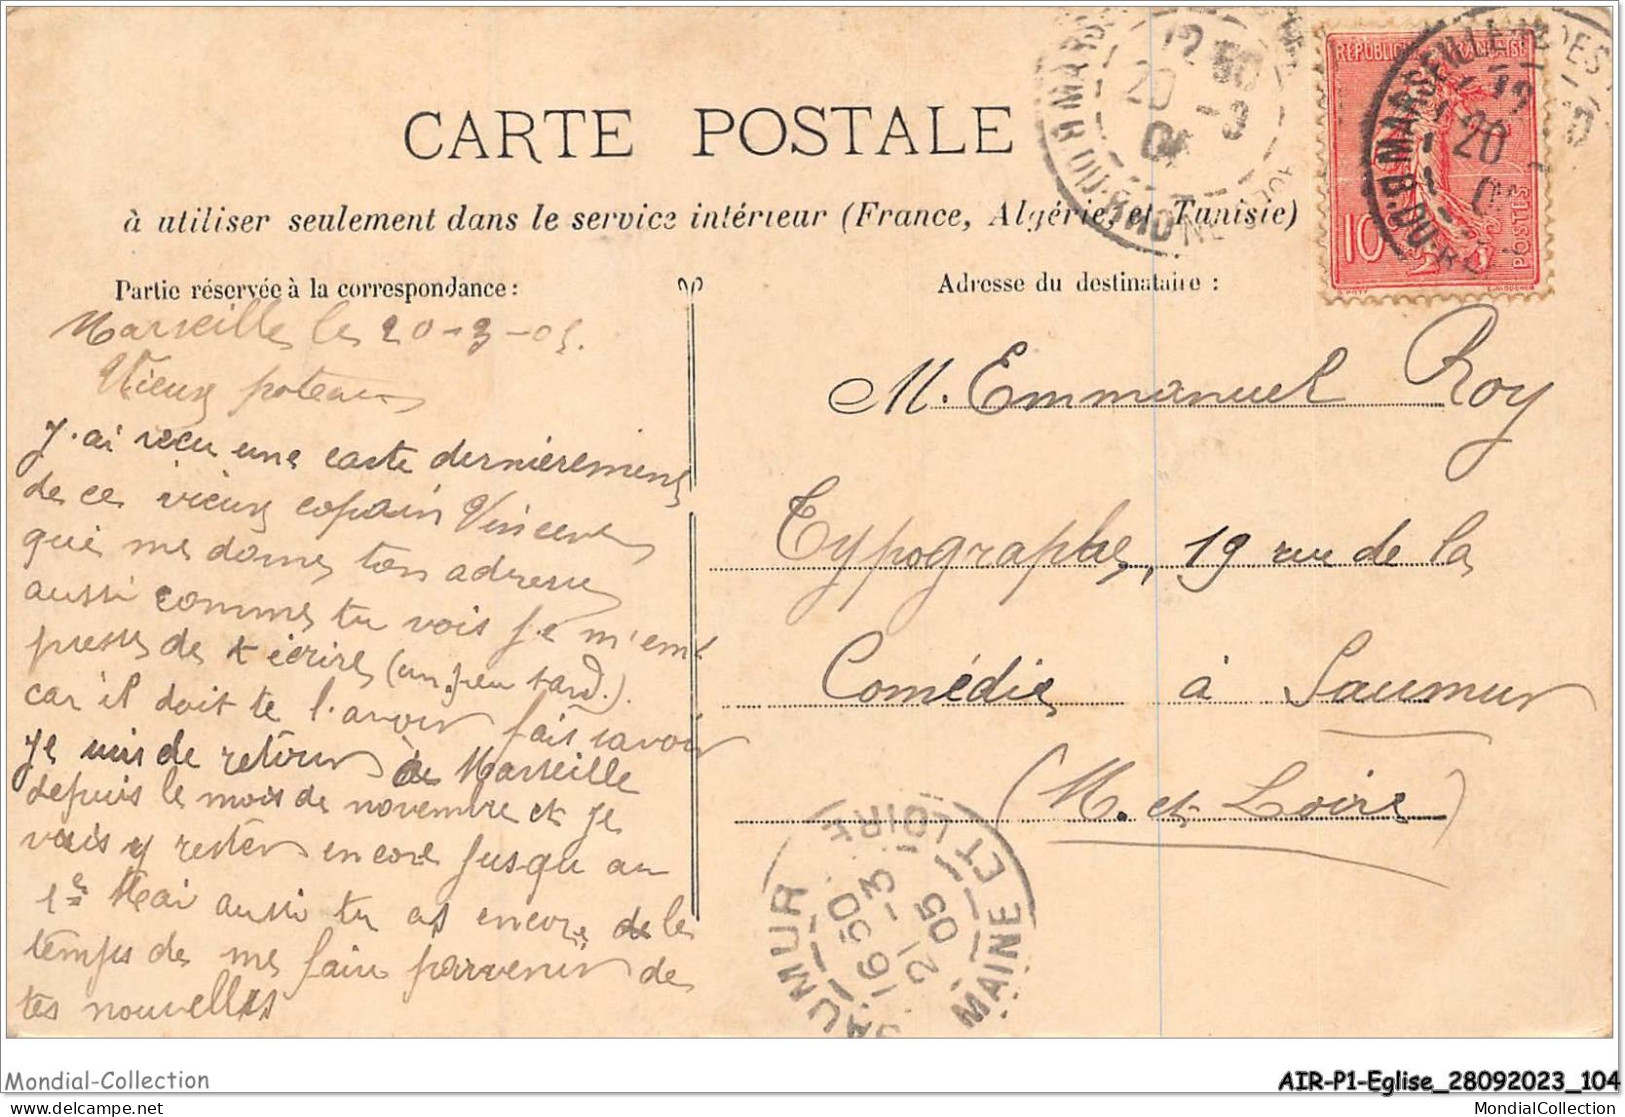 CARTE POSTALE
à utiliser seulement dans le service intérieur (France, Algérie, et Tunisie)
Partie réservée à la correspondance :
Adresse du destinataire :
RÉPUBLIQUE FRANÇAISE
10
POSTES
MARSEILLE
B. DU-RHONE
12
20
Marseille le 20-3-05.
Vieux poteau
J'ai recu une carte dernièrement
de ce vieux copain Vincent
qui me donne ton adresse
aussi comme tu vois je m'em
presse de t écrire (un peu tard.)
car il doit te l'avoir fais savoir
Je suis de retour de Marseille
depuis le mois de novembre et je
vais y rester encore jusqu au
1er Mai aussi tu as encore de le
temps de me faire parvenir de
tes nouvelles
M. Emmanuel Roy
Typographe, 19 rue de la
Comédie à Saumur
(M. et Loire)
SAUMUR
MAINE ET LOIRE
16 50
21 -3
05
Mondial-Collection
AIR-P1-Eglise_28092023_104
mondial-collection
MondialCollection